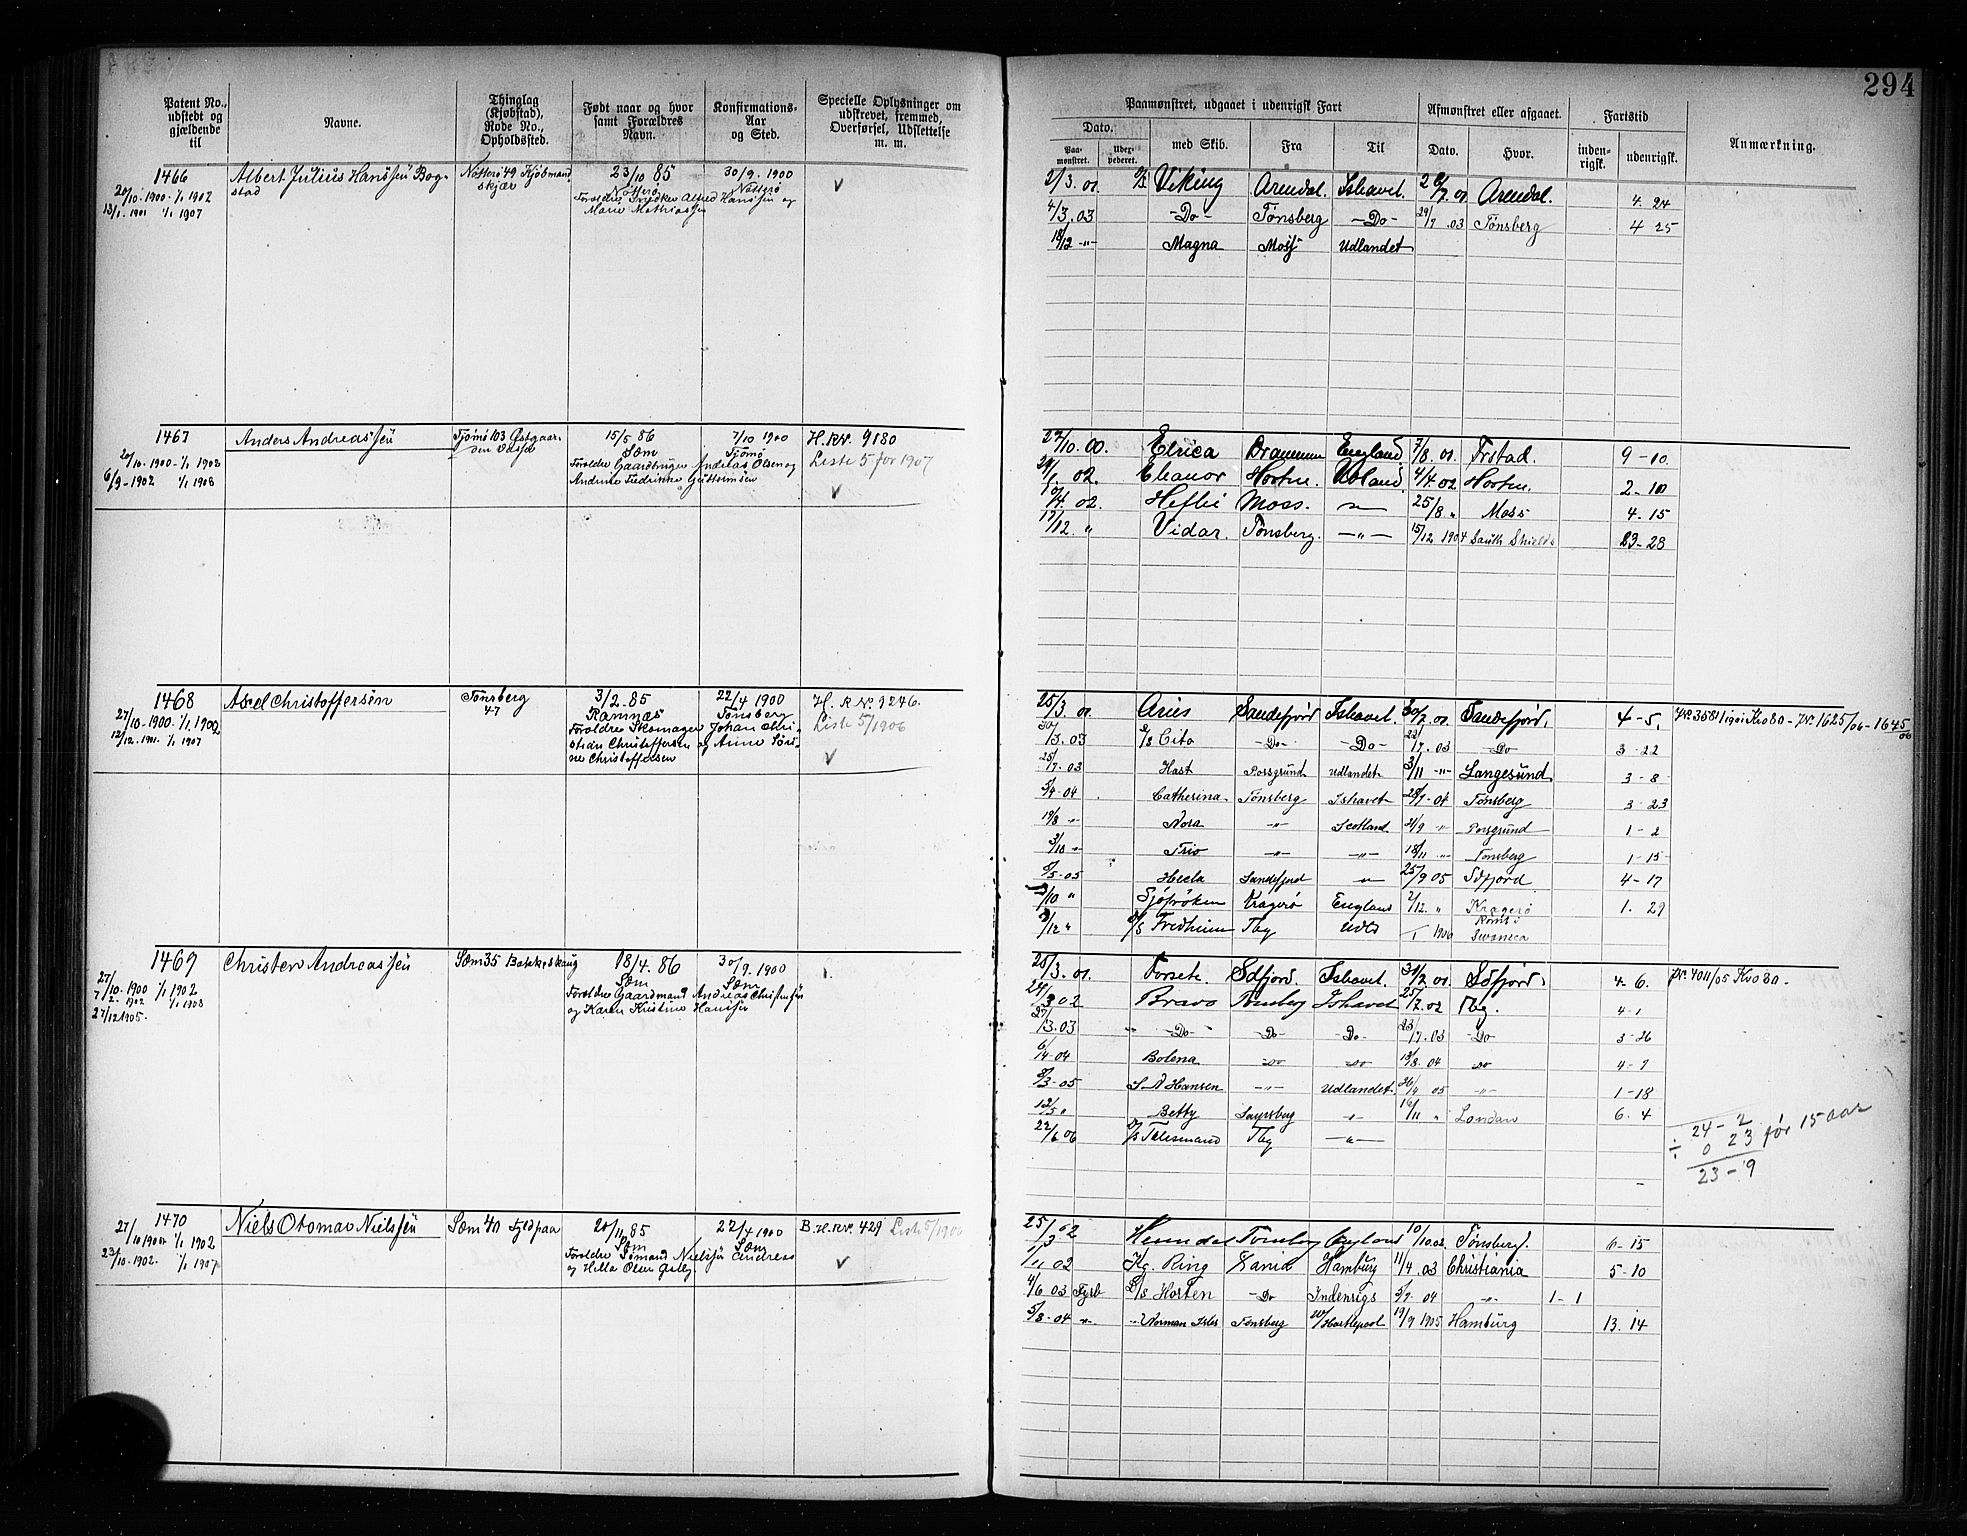 294
Patent No., udstedt og gjældende til
Navne.
Thinglag (Kjøbstad), Rode No., Opholdssted.
Født naar og hvor samt Forældres Navn.
Konfirmations-Aar og Sted.
Specielle Oplysninger om udskrevet, fremmed, Overførsel, Udslettelse m. m.
Paamønstret, udgaaet i udenrigsk Fart
Afmønstret eller afgaaet.
Fartstid
Anmærkning.
Dato.
Paamønstret.
med Skib.
Fra
Til
Dato.
Hvor.
indenrigsk.
udenrigsk.
1466
20/10-1900-1/1 1902
13/1 1901 1/1 1907
Albert Julius Hanssen Bogstad
Nøtterø 49 Kjøbmandskjær
23/10 85
Nøtterø
30/9. 1900
Nøtterø
Marie Mathiassen
2/3. 01 Viking Arendal. Ishavet. Arendal. 4 24
4/3.03 -Do- Tønsberg -Do- 29/7.03 Tønsberg 4 25
18/12 -"- Magna Moss Udlandet
1467
20/10-1900-1/1 1903
6/9-1902 1/1 1908
Anders Andreassen
Tjømø 103 Østgaarden
15/5 86
Sæm
7/10 1900
Tjømø
Forældre Gaardbruger Andreas Olsen og
Andrine Fredrikke Guttormsen
H. R№. 9180
Liste 5 for 1907
27/10.00. Elrica Drammen England 7/8.01. Frstad. 9-10.
Eleanor Horten. Udland. 4/4.02 Horten. 2-10
Moss. 25/8 " Moss 4.15
17/12. " Vidar. Tønsberg. -"- 15/12 1904 South Shields 23-28
1468
27/10-1900-1/1 1902
12/12.1901. 1/1 1907
Axel Christoffersen
Tønsberg 47
3/2-85
Ramnæs
22/4 1900
Tønsberg
Forældre Skomager Johan Christian Christoffersen og Anne Sørine Christoffersen
H. R№. 9246.
Liste 5/1906
25/3.01 Aries Sandefjord Ishavet. Sandefjord. 4-5.
30/3.03 S/S Cito -Do- -Do- 22/7.03 -Do- 3-22
25/7.03 Hast Porsgrund Udlandet 3/11 -"- Langesund 3-8
5/4-04 Catherina Tønsberg Ishavet 28/7-04 Tønsberg 3-23
19/8 " Nora -"- Scotland 21/9 " Porsgrund 1-2
3/10 " Trio -"- -"- 18/11 " Tønsberg 1-15
8/5-05 Hecla Sandefjord -"- 25/9 05 Sdfjord 4-17
3/10 " Sjøfrøken Kragerø England 2/12. " Kragerø 1.29
/12 " Fredheim Tbg Udld 1906
1469
27/10-1900 1/1 1902
7/2-1902 1/1 1908
27/12 1905.
Christen Andreassen
Sæm 35 Bakkeskaug
18/4. 86
Sæm
30/9. 1900
Sæm
Forældre Gaardmand Andreas Christensen
og Karen Kristine Hanssen
25/3.01. Forsete Sdfjord Ishavet. Sdfjord. 4-6.
24/3 02 Bravo Tønsberg Ishavet 25/7.02 Tbg. 4-1
27/3.03 -Do- -Do- Do- 23/7.03 -Do 3-26
6/4-04 Bolena -Do -Do 13/8.04 Do 4-7
S. A Hansen -"- Udlandet. 26/4 05 -"- 1-18
12/5 " Betty Sarpsborg -"- 16/11 " London 6.4
22/6 06 Talisman Tbg -"-
24-2
÷ 0 23 før 15 aar
23-9
1470
27/10 1900 1/1 1902
23/10-1902. 1/1 1907
Niels Otomar Nielssen
Sæm 40
20/11 85
Sæm
22/4 1900
Sæm
Forældre Sømand Nielssen Andreas
B.H.R№. 429 Liste 5/1906
25/3 02 Tønsberg England 10/10.02. Tønsberg. 6-15
1/11 02 Kg. Ring Hamburg 11/4.03 Christiania 5-10
4/6 03 Fyrb D/S Horten -Do Indenrigs 04 -"- 1-1
5/8-04 -"- Norman Isles Tønsberg Hartlepool 19/9 1905 Hamburg 13.14